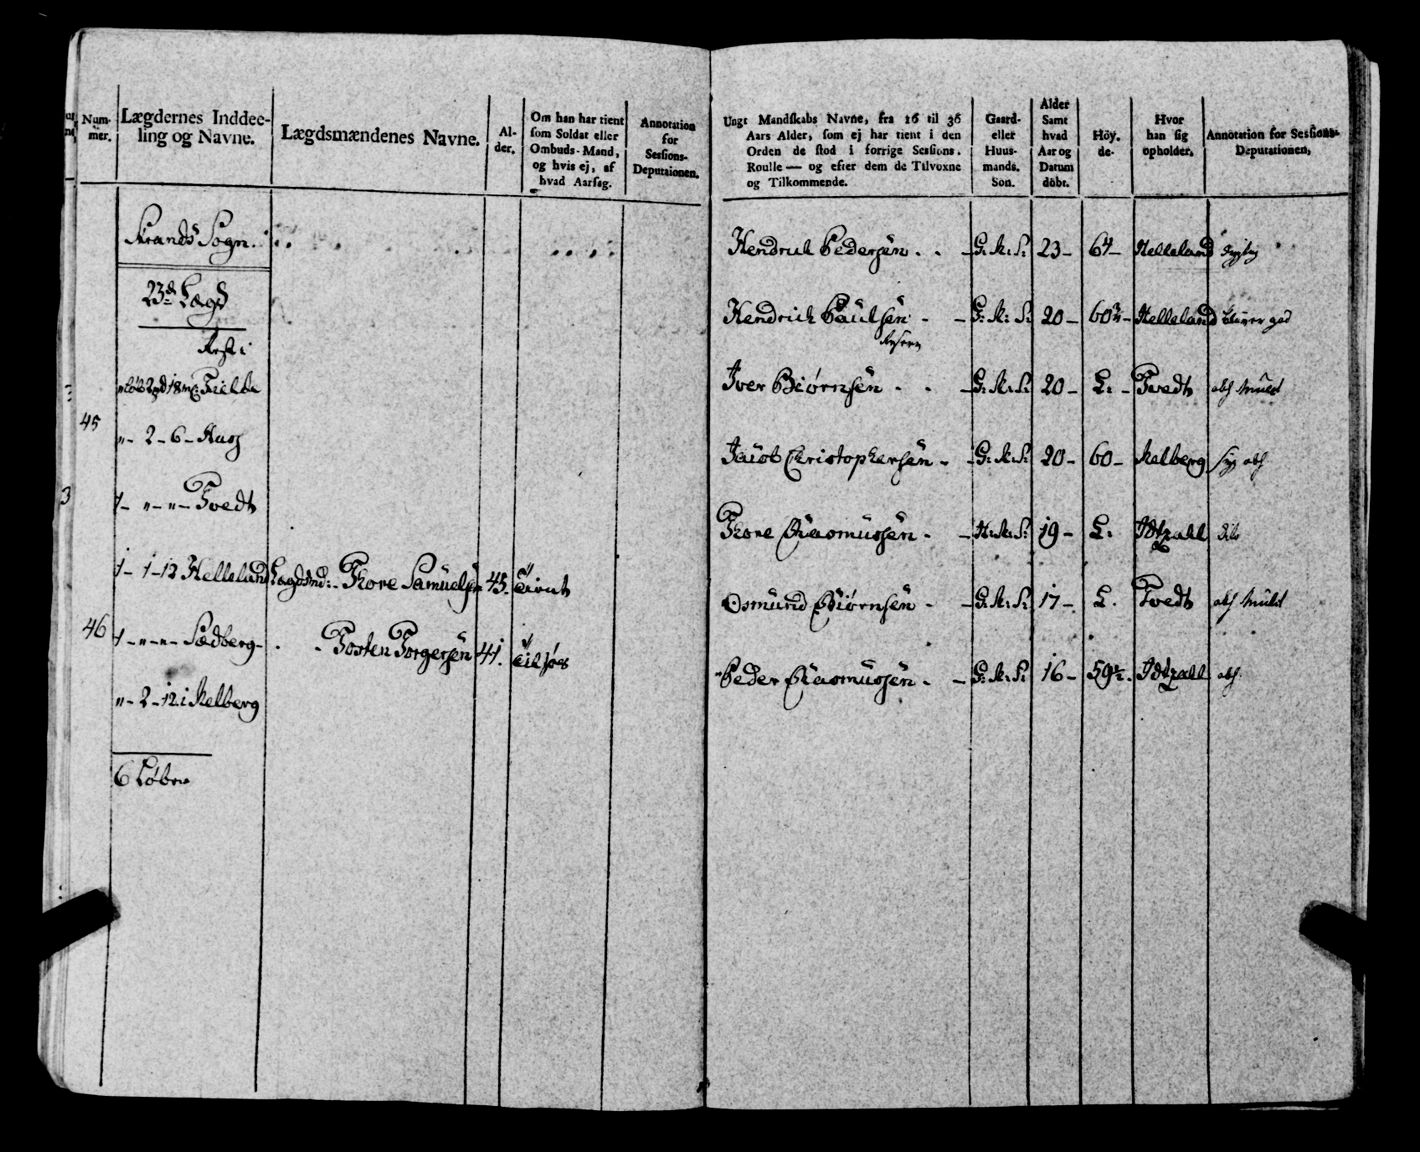 Num-
mer.
Lægdernes Inddee-
ling og Navne.
Lægdsmændenes Navne.
Al-
der.
Om han har tient
som Soldat eller
Ombuds-Mand,
og hvis ej, af
hvad Aarsag.
Annotation
for
Sessions-
Deputationen.
Strands Sogn.
23de Lægd
45
"- 2-6- Haug
3
1- "-"- Tvedt
1- 1-12 Helleland Lægdsmd: Thore Samuelsen 45. Tient
46 1-"-"- Sædberg- - Tosten Torgersen 41.
"- 2-12. i Kalberg
6 Løber
Unge Mandskabs Navne, fra 16 til 36
Aars Alder, som ej har tient i den
Orden de stod i forrige Sessions.
Roulle — og efter dem de Tilvoxne
og Tilkommende.
Gaard-
eller
Huus-
mands.
Son.
Alder
Samt
hvad
Aar og
Datum
döbt.
Höy.
de.
Hvor
han sig
opholder.
Annotation for Sessions-
Deputationen,
Hendrich Pedersen - - G: M: S: 23- 64- Helleland dygtig
Hendrich Paulsen - - G: M: S: 20- 60 Helleland
Iver Biørnsen - - G: M: S: 20- L: - Tvedt
Jacob Christophersen - - G: M: S: 20- 60- Kalberg
Thore Rasmussen - - H: M: S: 19- L:
Osmund Biørnsen - - G: M: S: 17- L. Tvedt
Peder Rasmussen - - G: M: S: 16- 59½.